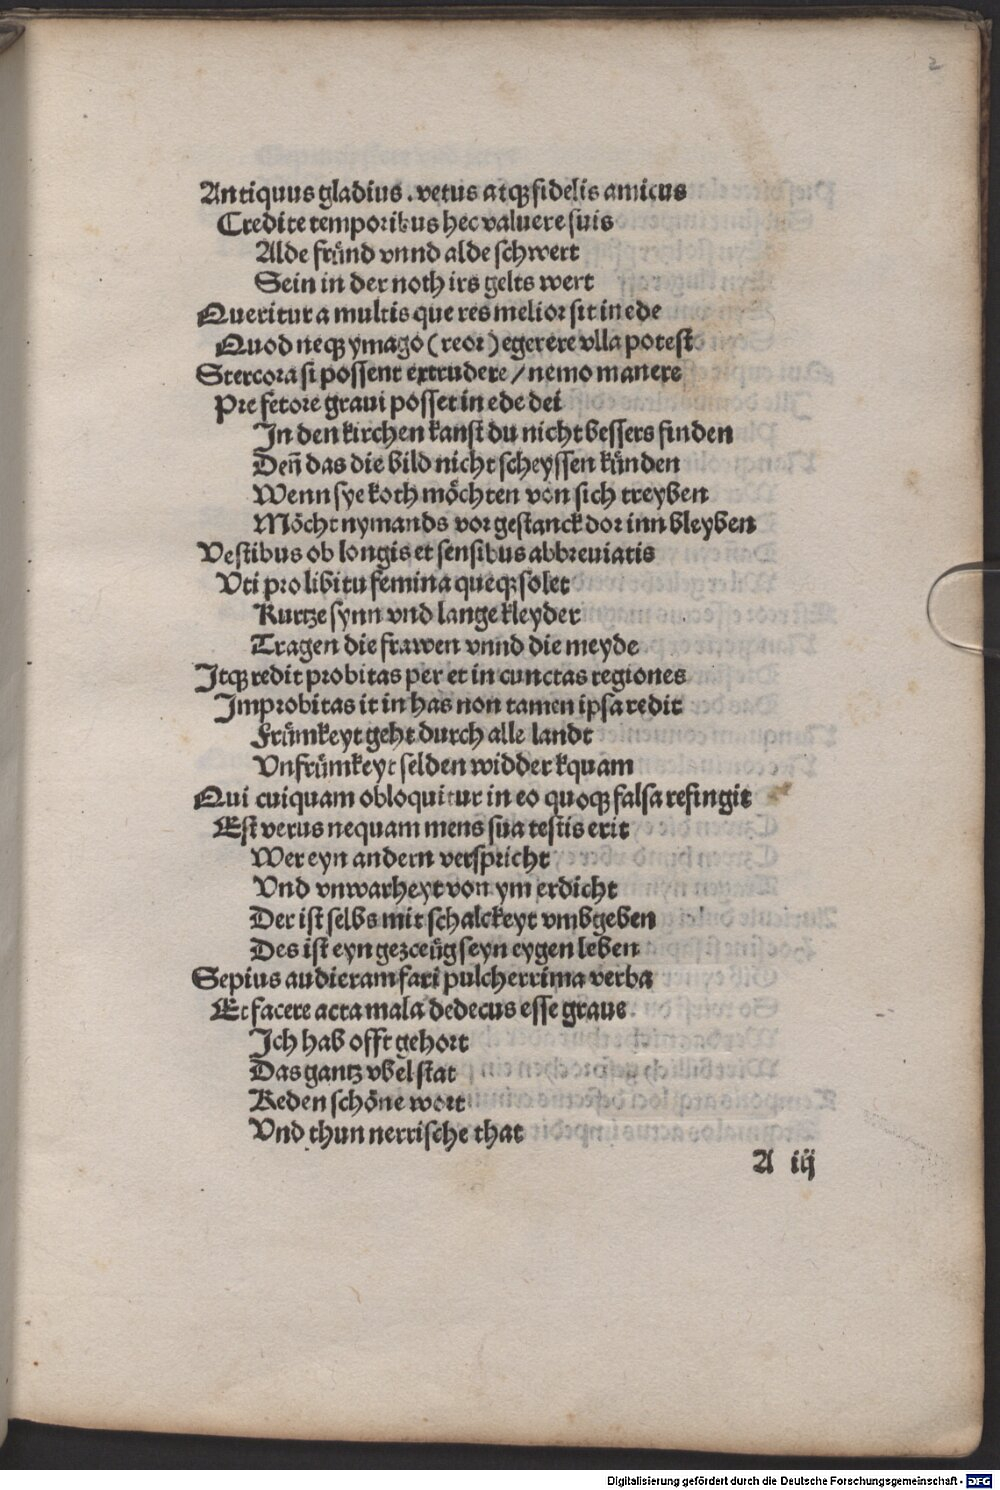 2
Antiquus gladius. vetus atqꝫ fidelis amicus
Credite temporibus hec valuere suis
Alde fründ vnnd alde schwert
Sein in der noth irs gelts wert
Queritur a multis que res melior sit in ede
Quod neqꝫ ymago (reor) egerere vlla potest
Stercora si possent extrudere / nemo manere
Pre fetore graui posset in ede dei
In den kirchen kanst du nicht bessers finden
Deñ das die bild nicht scheyssen künden
Wenn sye koth möchten von sich treyben
Möcht nymands vor gestanck dor inn bleyben
Vestibus ob longis et sensibus abbreuiatis
Vti pro libitu femina queqꝫ solet
Kurtze synn vnd lange kleyder
Tragen die frawen vnnd die meyde
Itqꝫ redit probitas per et in cunctas regiones
Improbitas it in has non tamen ipsa redit
Frümkeyt geht durch alle landt
Vnfrümkeyt selden widder kquam
Qui cuiquam obloquitur in eo quoqꝫ falsa refingit
Est verus nequam mens sua testis erit
Wer eyn andern verspricht
Vnd vnwarheyt von ym erdicht
Der ist selbs mit schalckeyt vmbgeben
Des ist eyn gezceüg seyn eygen leben
Sepius audieram fari pulcherrima verba
Et facere acta mala dedecus esse graue
Ich hab offt gehort
Das gantz vbel stat
Reden schöne wort
Vnd thun nerrische that
A iij
Digitalisierung gefördert durch die Deutsche Forschungsgemeinschaft - DFG